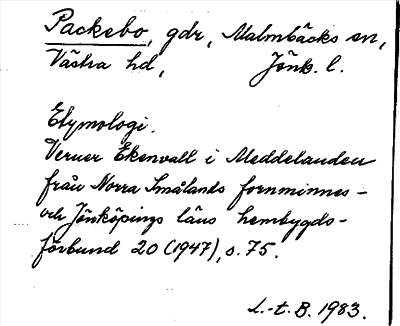 Packebo, gdr, Malmbäcks sn,
Västra hd, Jönk. l.
Etymologi.
Verner Ekenvall i Meddelanden
från Norra Smålands fornminnes-
och Jönköpings läns hembygds-
förbund 20 (1947), s. 75.
L.-t. B. 1983.